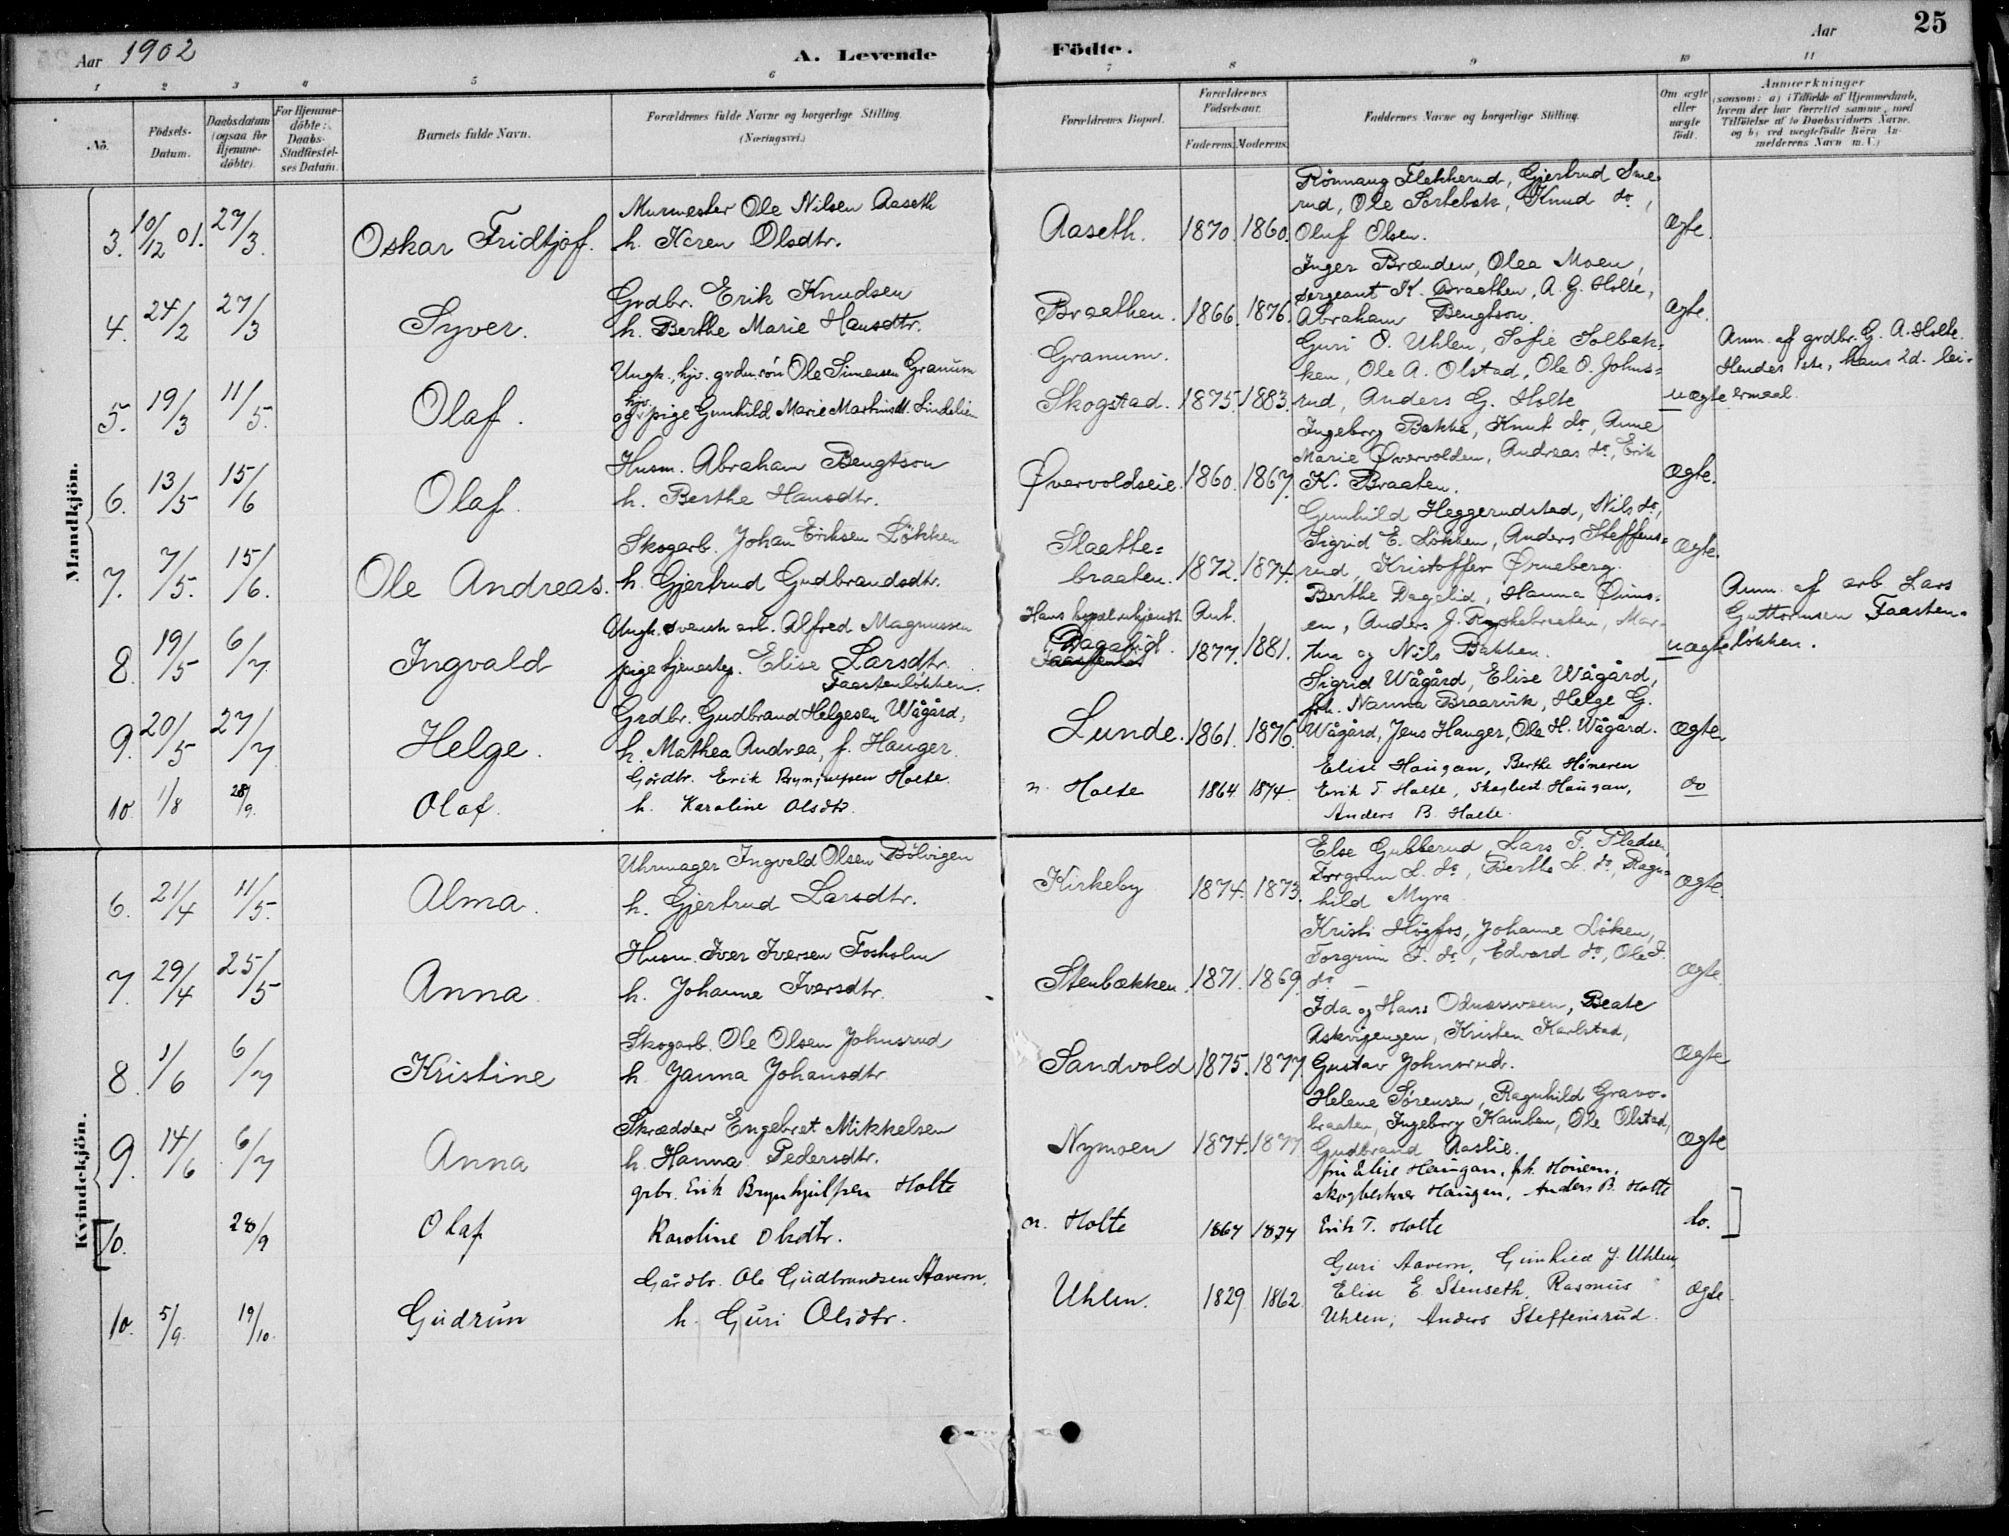 Aar 1902
A. Levende Födte.
Aar
25
1 2 3 4 5 6 7 8 9 10 11
No.
Födsels-Datum.
Daabsdatum (ogsaa for Hjemme-döbte).
For Hjemme-döbte: Daabs-Stadfæstel-ses Datum.
Barnets fulde Navn.
Forældrenes fulde Navne og borgerlige Stilling (Næringsvei.)
Forældrenes Bopæl.
Forældrenes Födselsaar. Faderens. Moderens.
Faddernes Navne og borgerlige Stilling.
Om ægte eller uægte födt.
Anmærkninger (saasom: a) i Tilfælde af Hjemmedaab, hvem der har forrettet samme, med Tilföielse af to Daabsvidners Navne, og b) ved uægtefödte Börn Anmelderens Navn m. V.)
Mandkjön.
3. 10/12 01. 27/3. Oskar Fridtjof.
Murmester Ole Nilsen Aaseth
h. Karen Olsdtr.
Aaseth. 1870. 1860.
Rönnaug Flekkerud, Gjertrud Sme-
rud, Ole Sortebæk, Knud do,
Oluf Olsen.
Ægte.
4. 24/2 27/3 Syver.
Grdbr. Erik Knudsen
h. Berthe Marie Hansdtr.
Braathen. 1866. 1876.
Inger Brænden, Olea Moen,
sergeant K. Braathen, A. G. Holte,
Abraham Bengtson.
Ægte.
5. 19/3 11/5. Olaf.
Ungk., hjv. grdm.sön Ole Simensen Granum
og hjv. pige Gunhild Marie Martinsdt. Lindelien
Granum.
Skogstad. 1875. 1883.
Guri O. Uhlen, Sofie Solbak-
ken, Ole A. Olstad, Ole O. Johns-
rud, Anders G. Holte
uægte
Anm. af grdbr. G. A. Holte.
Hendes 1ste, hans 2d. lei-
ermaal.
6. 13/5 15/6 Olaf.
Husm. Abraham Bengtson
h. Berthe Hansdtr.
Øvervoldseie. 1860. 1867.
Ingeborg Bakke, Knut do, Anne
Marie Øvervolden, Andreas do, Erik
K. Braaten.
Ægte.
7. 7/5. 15/6. Ole Andreas.
Skogarb. Johan Eriksen Løkken
h. Gjertrud Gudbrandsdtr.
Slaette-
braaten. 1872. 1874.
Gunhild Heggerudstad, Nils do,
Sigrid E. Løkken, Anders Steffens-
rud, Kristoffer Ørneberg.
Ægte.
8. 19/5 6/7. Ingvald
Ungk. svensk arb. Alfred Magnussen
pige tjenestep. Elise Larsdtr.
Faastenløkken.
Hans bopæl ukjendt
Dagalid. Ant. 1877. 1881.
Berthe Dagalid, Hanna Øims-
en, Anders J. Ryskebraaten, Mar-
tha og Nils Bakken.
uægte
Anm. af arb. Lars
Guttormsen Faasten-
løkken.
9. 20/5 27/7 Helge.
Grdbr. Gudbrand Helgesen Wågård,
h. Mathea Andrea, f. Hauger.
Lunde. 1861. 1876.
Sigrid Wågård, Elise Wågård,
frk. Nanna Braarvik, Helge G.
Wågård, Jens Hauger, Ole H. Wågård.
Ægte.
10 1/8 28/9. Olaf.
Gårdbr. Erik Brynjulfsen Holte.
h. Karoline Olsdtr.
n. Holte 1864 1874.
Elise Haugan, Berthe Hömeren
Erik T. Holte, Skogbest. Haugan,
Anders B. Holte.
do
Kvindekjön.
6. 21/4 11/5. Alma.
Uhrmager Ingvald Olsen Bölvigen
h. Gjertrud Larsdtr.
Kirkeby 1874. 1873.
Else Gubberud, Lars T. Pladsen,
Torgrim L. do, Berthe L. do, Ragn-
hild Myra
Ægte.
7. 29/4 25/5 Anna.
Husm. Iver Iversen Fosholm
h. Johanne Iversdtr.
Stenbækken. 1871. 1869.
Kristi Høgfos, Johanne Løken,
Torgrim T. do, Edvard do, Ole T.
do
Ægte.
8. 1/6 6/7 Kristine
Skogarb. Ole Olsen Johnsrud
h. Janna Johansdtr.
Sandvold 1875. 1877.
Ida og Hans Odnæsveen, Beate
Askvigengen, Kristen Karlstad,
Gustav Johnsrud.
Ægte
9. 14/6 6/7 Anna
Skrædder Engebret Mikkelsen
h. Hanna Pedersdtr.
Nymoen 1874. 1877
Helene Sørensen, Ragnhild Gravo-
braaten, Ingeborg Kamben, Ole Olstad,
Gudbrand Aaslie.
Ægte
[10. 28/9 Olaf
grbr. Erik Brynhjulfsen Holte
Karoline Olsdtr.
n. Holte 1864 1874
fru Elise Haugan, frk. Honem,
skogbestyrer Haugen, Anders B. Holte
Erik T. Holte
do.]
10. 5/9. 19/10. Gudrun
Gårdbr. Ole Gudbrandsen Aavern.
h. Guri Olsdtr.
Uhlen. 1829 1862
Guri Aavern, Gunhild J. Uhlen,
Elise E. Stenseth, Rasmus
Uhlen, Anders Steffensrud.
Ægte.